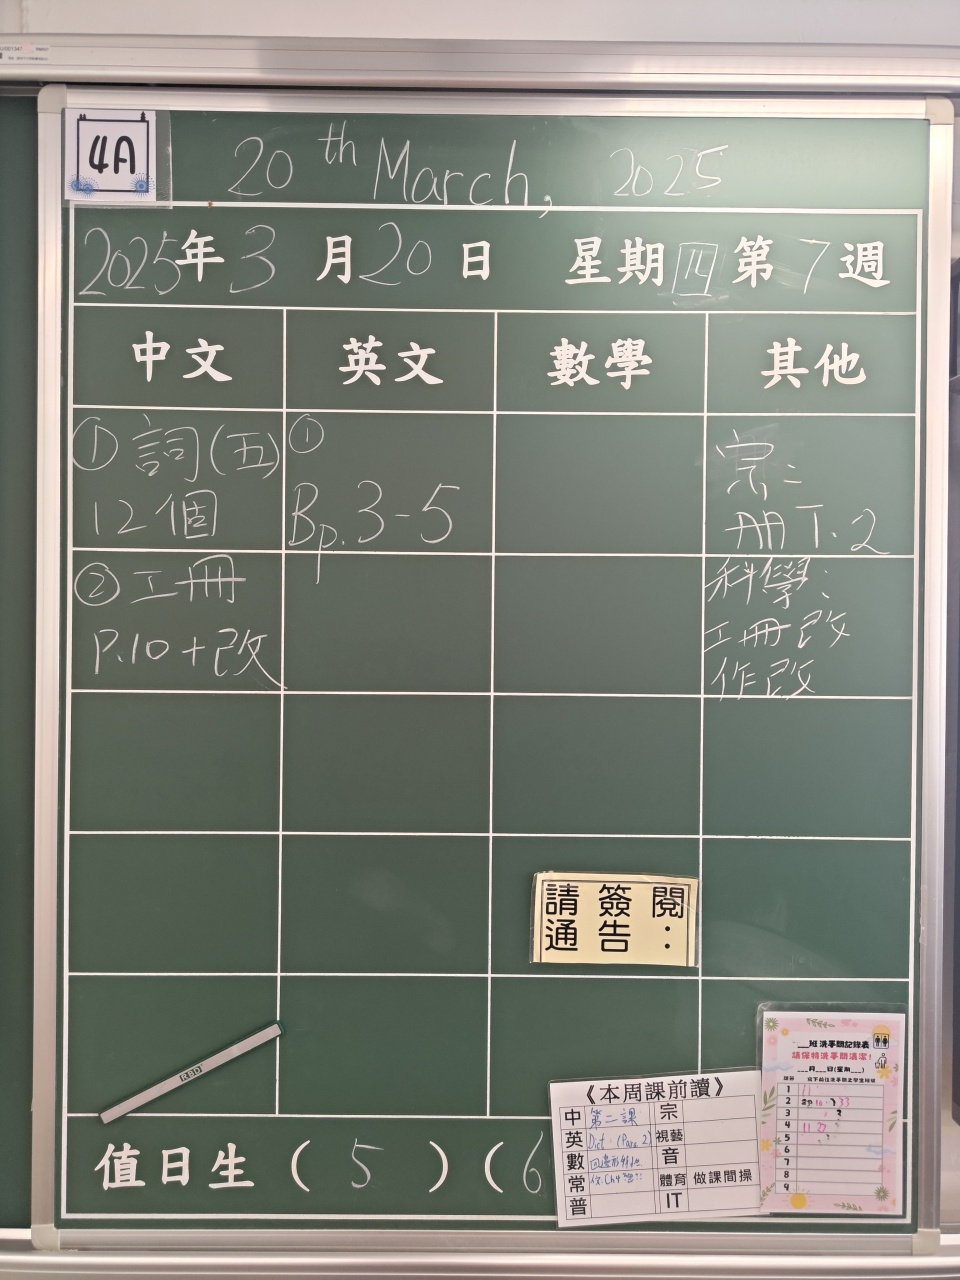 4A
20th March, 2025
2025年3月20日 星期四 第7週
中文 英文 數學 其他
① 詞(五)
12個
①
Bp.3-5
宗:
冊T.2
② 工冊
P.10+改
科學:
工冊改
作改
請簽閱
通告:
RBD
值日生 ( 5 ) ( 6
《本周課前讀》
中 第二課 宗
英 Dict (Para 2) 視藝
數 四邊形特性 音
常 體育 做課間操
普 IT
班洗手間記錄表
請保持洗手間清潔!
月 日(星期 )
1
2
3
4
5
6
7
8
9